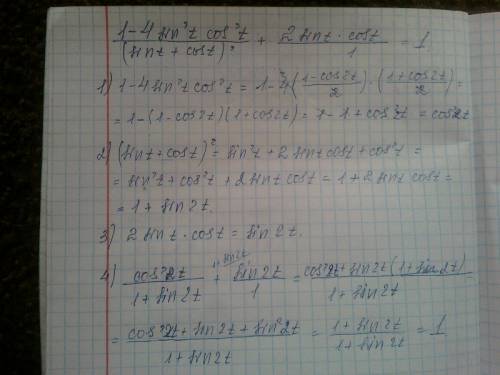 (1 - 4 sin²t cos²t)/(sin t + cos t)² + (2 sin t · cos t)/1 = 1
1) 1 - 4 sin²t cos²t = 1 - 4((1 - cos 2t)/2) · ((1 + cos 2t)/2) =
= 1 - (1 - cos 2t)(1 + cos 2t) = 1 - 1 + cos²2t = cos²2t
2) (sin t + cos t)² = sin²t + 2 sin t cos t + cos²t =
= sin²t + cos²t + 2 sin t cos t = 1 + 2 sin t cos t =
= 1 + sin 2t.
3) 2 sin t · cos t = sin 2t.
4) (cos²2t)/(1 + sin 2t) + (sin 2t)/1 = (cos²2t + sin 2t (1 + sin 2t))/(1 + sin 2t)
= (cos²2t + sin 2t + sin²2t)/(1 + sin 2t) = (1 + sin 2t)/(1 + sin 2t) = 1